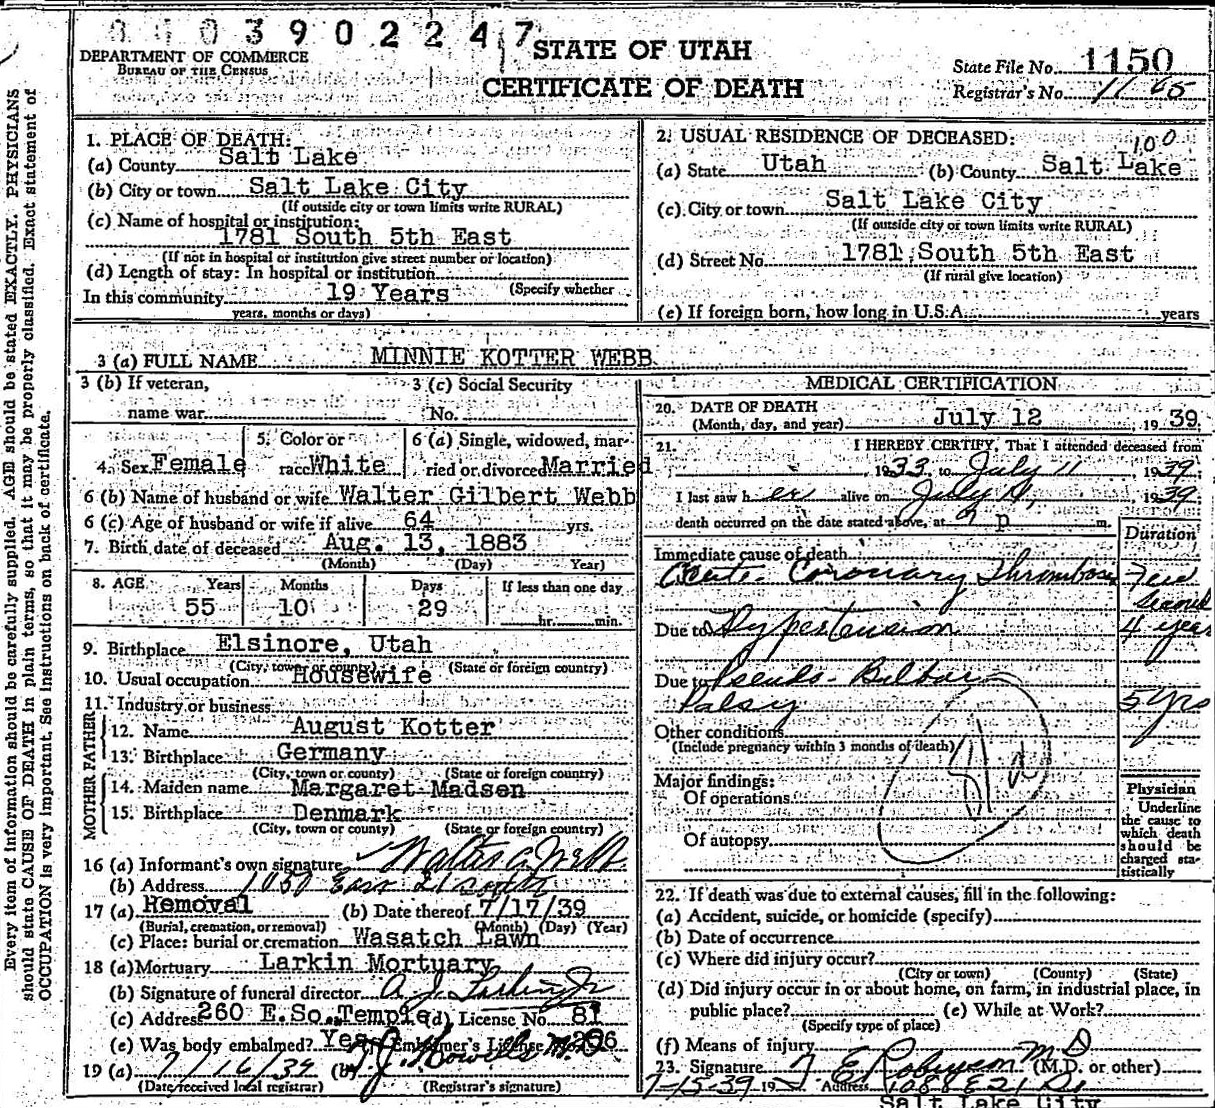 0003902247
STATE OF UTAH
CERTIFICATE OF DEATH
DEPARTMENT OF COMMERCE
BUREAU OF THE CENSUS
State File No. 1150
Registrar's No. 1165
Every item of information should be carefully supplied. AGE should be stated EXACTLY. PHYSICIANS
should state CAUSE OF DEATH in plain terms, so that it may be properly classified. Exact statement of
OCCUPATION is very important. See instructions on back of certificate.
1. PLACE OF DEATH:
(a) County Salt Lake
(b) City or town Salt Lake City
(If outside city or town limits write RURAL)
(c) Name of hospital or institution:
1781 South 5th East
(If not in hospital or institution give street number or location)
(d) Length of stay: In hospital or institution
In this community 19 Years (Specify whether
years, months or days)
2. USUAL RESIDENCE OF DECEASED:
100
(a) State Utah (b) County Salt Lake
(c) City or town Salt Lake City
(If outside city or town limits write RURAL)
(d) Street No. 1781 South 5th East
(If rural give location)
(e) If foreign born, how long in U.S.A. years
3 (a) FULL NAME MINNIE KOTTER WEBB
3 (b) If veteran,
name war
3 (c) Social Security
No.
4. Sex Female
5. Color or
race White
6 (a) Single, widowed, mar-
ried or divorced Married
6 (b) Name of husband or wife Walter Gilbert Webb
6 (c) Age of husband or wife if alive 64 yrs.
7. Birth date of deceased Aug. 13, 1883
(Month) (Day) (Year)
8. AGE Years Months Days If less than one day
55 10 29 hr. min.
9. Birthplace Elsinore, Utah
(City, town or county) (State or foreign country)
10. Usual occupation Housewife
11. Industry or business
FATHER
12. Name August Kotter
13. Birthplace Germany
(City, town or county) (State or foreign country)
MOTHER
14. Maiden name Margaret Madsen
15. Birthplace Denmark
(City, town or county) (State or foreign country)
16 (a) Informant's own signature Walter G. Webb
(b) Address 1050 East 21 South
17 (a) Removal (b) Date thereof 7/17/39
(Burial, cremation, or removal) (Month) (Day) (Year)
(c) Place: burial or cremation Wasatch Lawn
18 (a) Mortuary Larkin Mortuary
(b) Signature of funeral director A. J.
(c) Address 260 E. So. Temple (d) License No. 81
(e) Was body embalmed? Yes Embalmer's License No.
19 (a) 7/16/39 (b) T. J. Howells M.D.
(Date received local registrar) (Registrar's signature)
MEDICAL CERTIFICATION
20. DATE OF DEATH
(Month, day, and year) July 12 1939
21. I HEREBY CERTIFY, That I attended deceased from
1933 to July 11 1939
I last saw her alive on July 11, 1939
death occurred on the date stated above, at 9 p m.
Duration
Immediate cause of death
Acute Coronary Thrombosis few seconds
Due to Hypertension 4 years
Due to Pseudo-Bulbar
Palsy 5 yrs
Other conditions
(Include pregnancy within 3 months of death)
Major findings:
Of operations
Of autopsy
Physician
Underline
the cause to
which death
should be
charged sta-
tistically
22. If death was due to external causes, fill in the following:
(a) Accident, suicide, or homicide (specify)
(b) Date of occurrence
(c) Where did injury occur?
(City or town) (County) (State)
(d) Did injury occur in or about home, on farm, in industrial place, in
public place? (e) While at Work?
(Specify type of place)
(f) Means of injury
23. Signature E Robinson M D (M.D. or other)
7-15-39 19 Address 1088 E 21 So
Salt Lake City